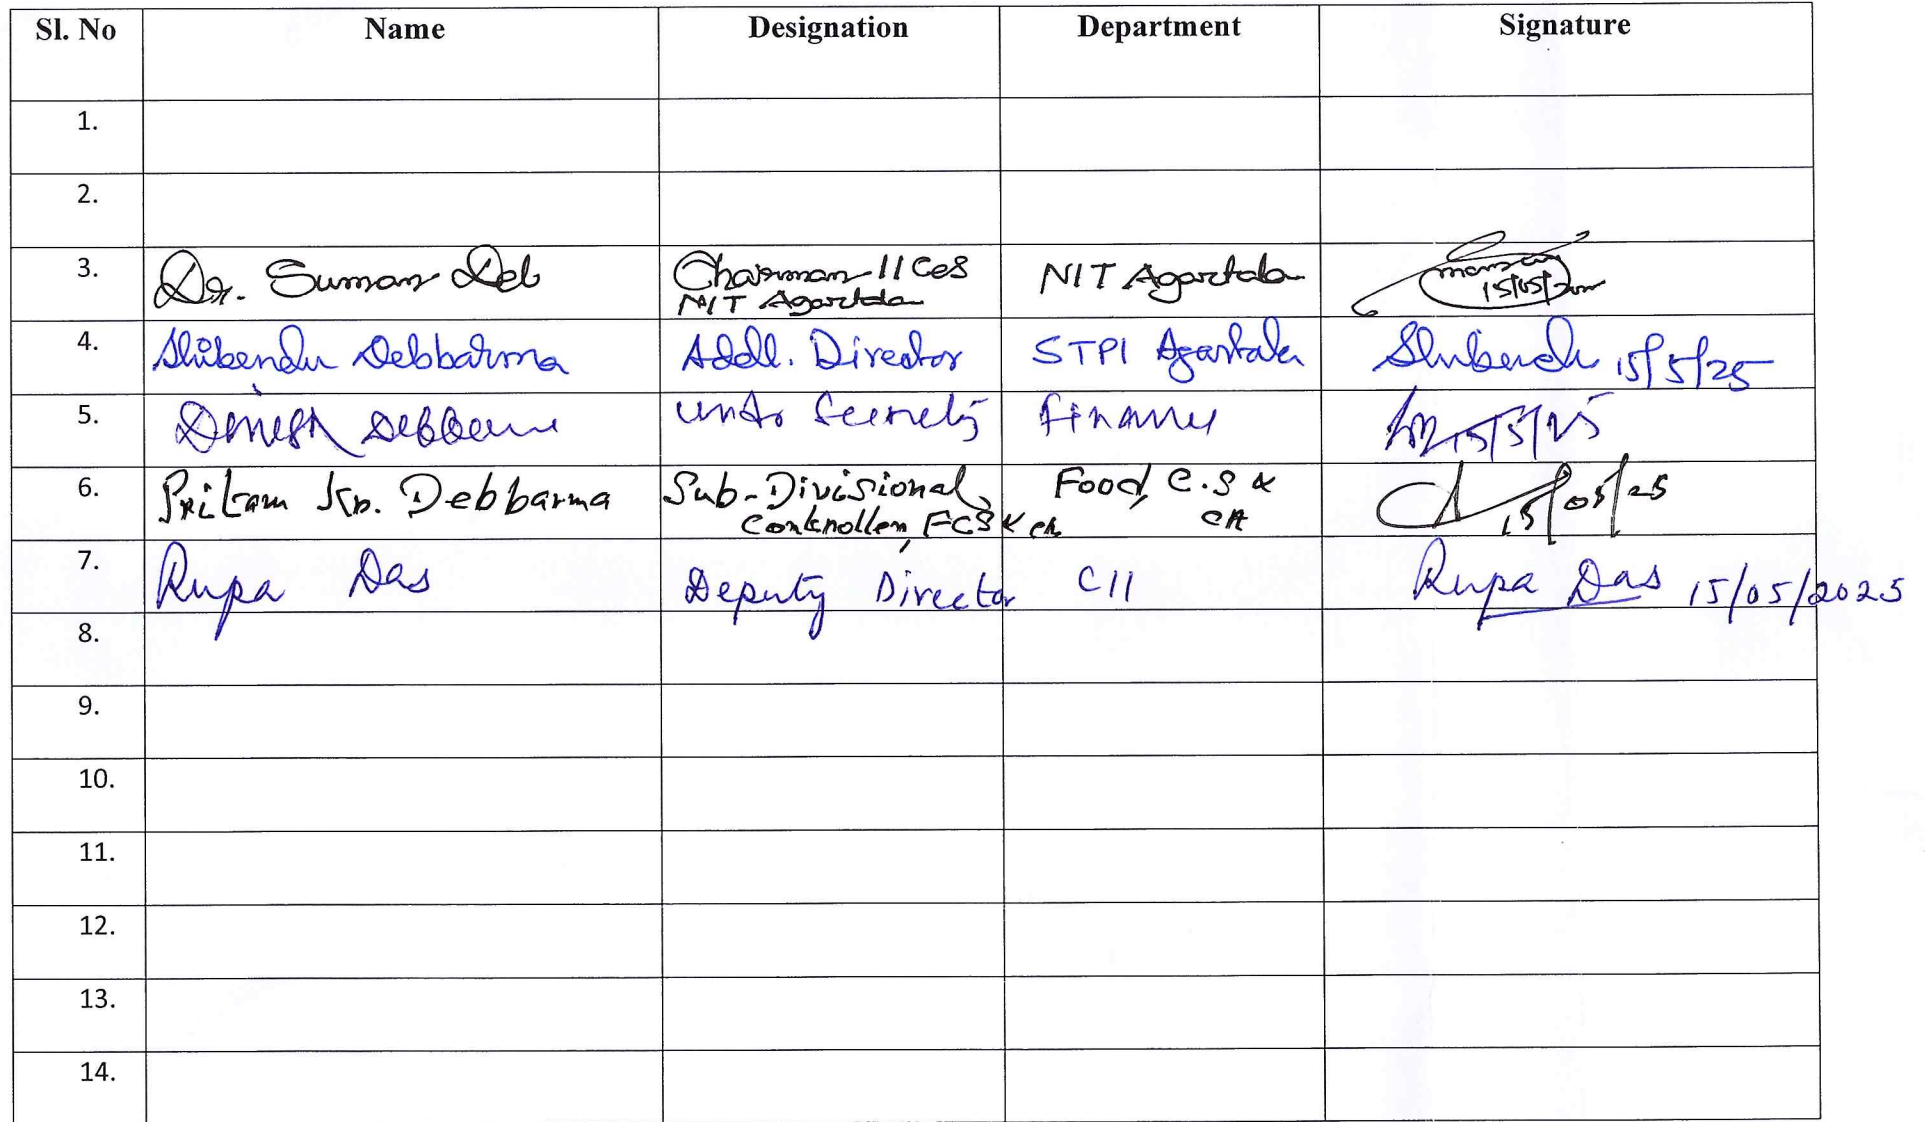 Sl. No Name Designation Department Signature
1.
2.
3. Dr. Suman Deb Chairman IICES NIT Agartala
NIT Agartala 15/05/
4. Shibendu Debbarma Addl. Director STPI Agartala 15/5/25
5. Dinesh Debbarma Finance 15/5/25
6. Pritam Kr. Debbarma Sub-Divisional Food, C.S & 15/05/25
Controller, FCS & CA CA
7. Rupa Das Deputy Director CII Rupa Das 15/05/2025
8.
9.
10.
11.
12.
13.
14.